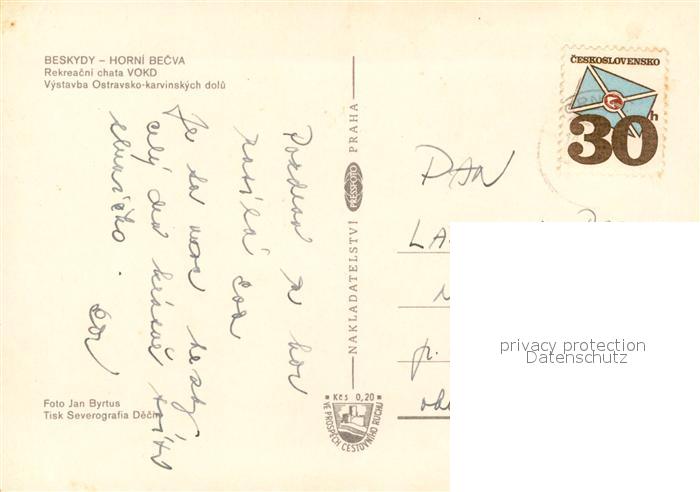 BESKYDY – HORNÍ BEČVA
Rekreační chata VOKD
Výstavba Ostravsko-karvinských dolů
Pozdrav z hor
zasílá
Je tu moc hezky
celý den krásně svítí
sluníčko.
Foto Jan Byrtus
Tisk Severografia Děčín
NAKLADATELSTVÍ PRESSFOTO PRAHA
Kčs 0,20
VE PROSPĚCH CESTOVNÍHO RUCHU
ČESKOSLOVENSKO
30h
PAN
privacy protection
Datenschutz